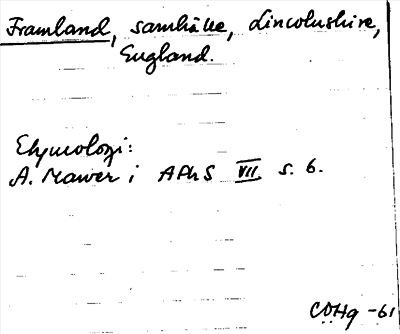 Framland, samhälle, Lincolnshire,
England.
Etymologi:
A. Mawer i APhS VII s. 6.
COHg -61